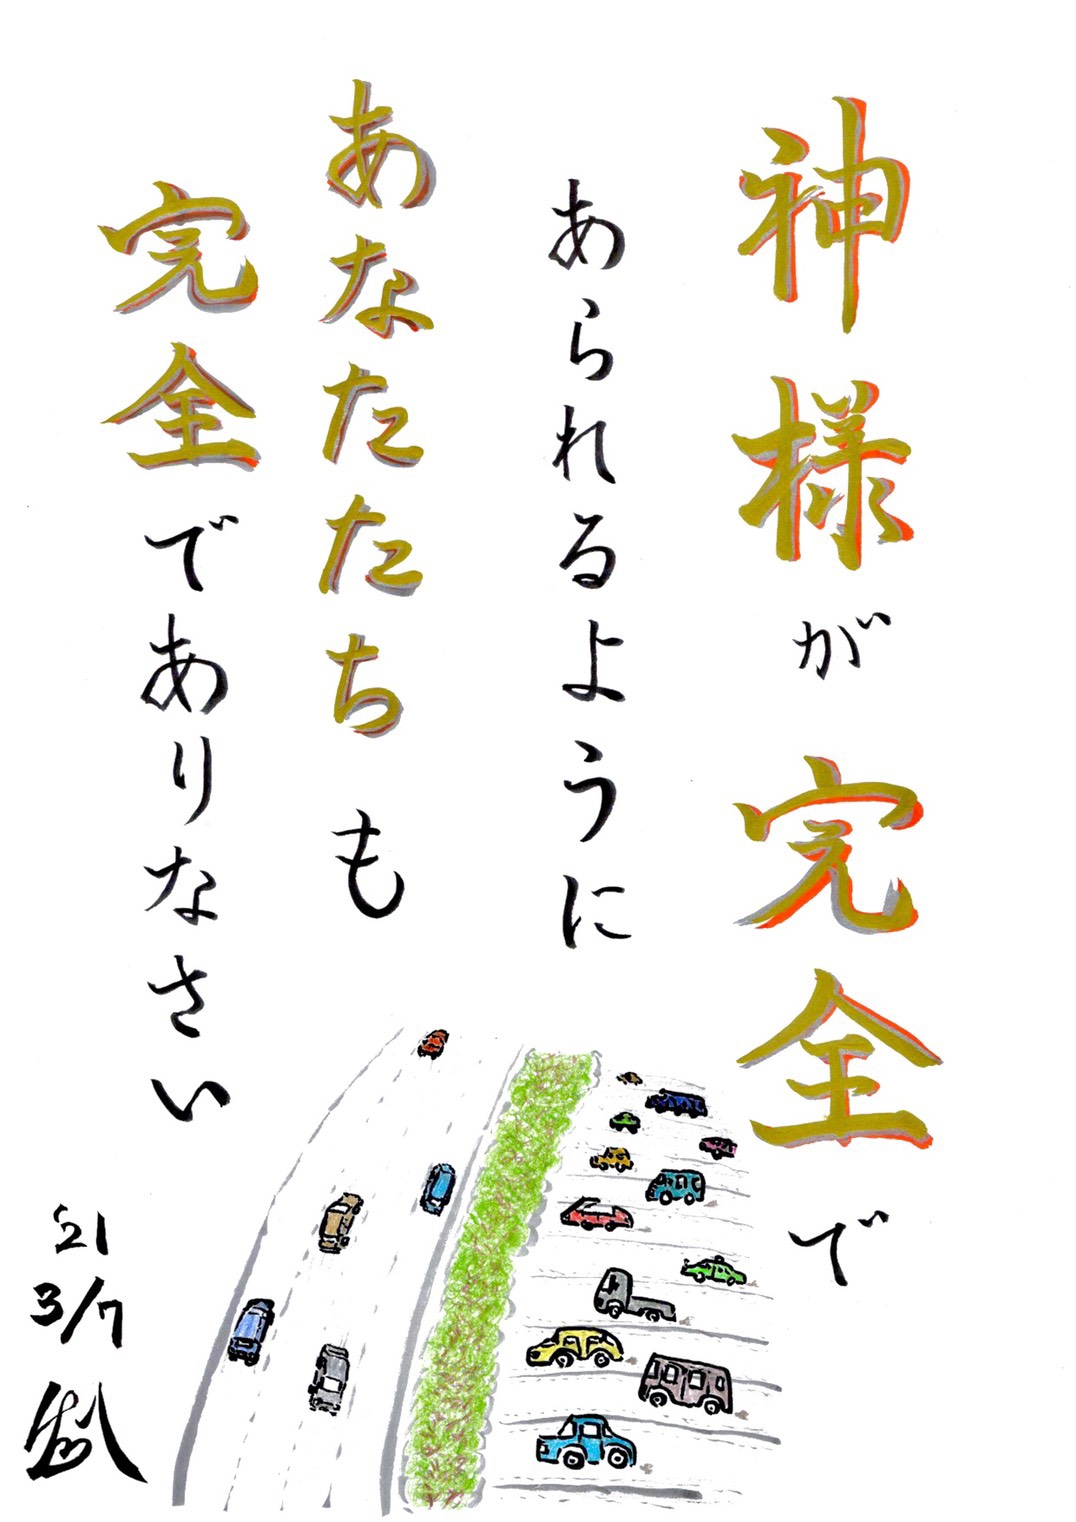 神様が完全で
あられるように
あなたたちも
完全でありなさい
'21
3/7